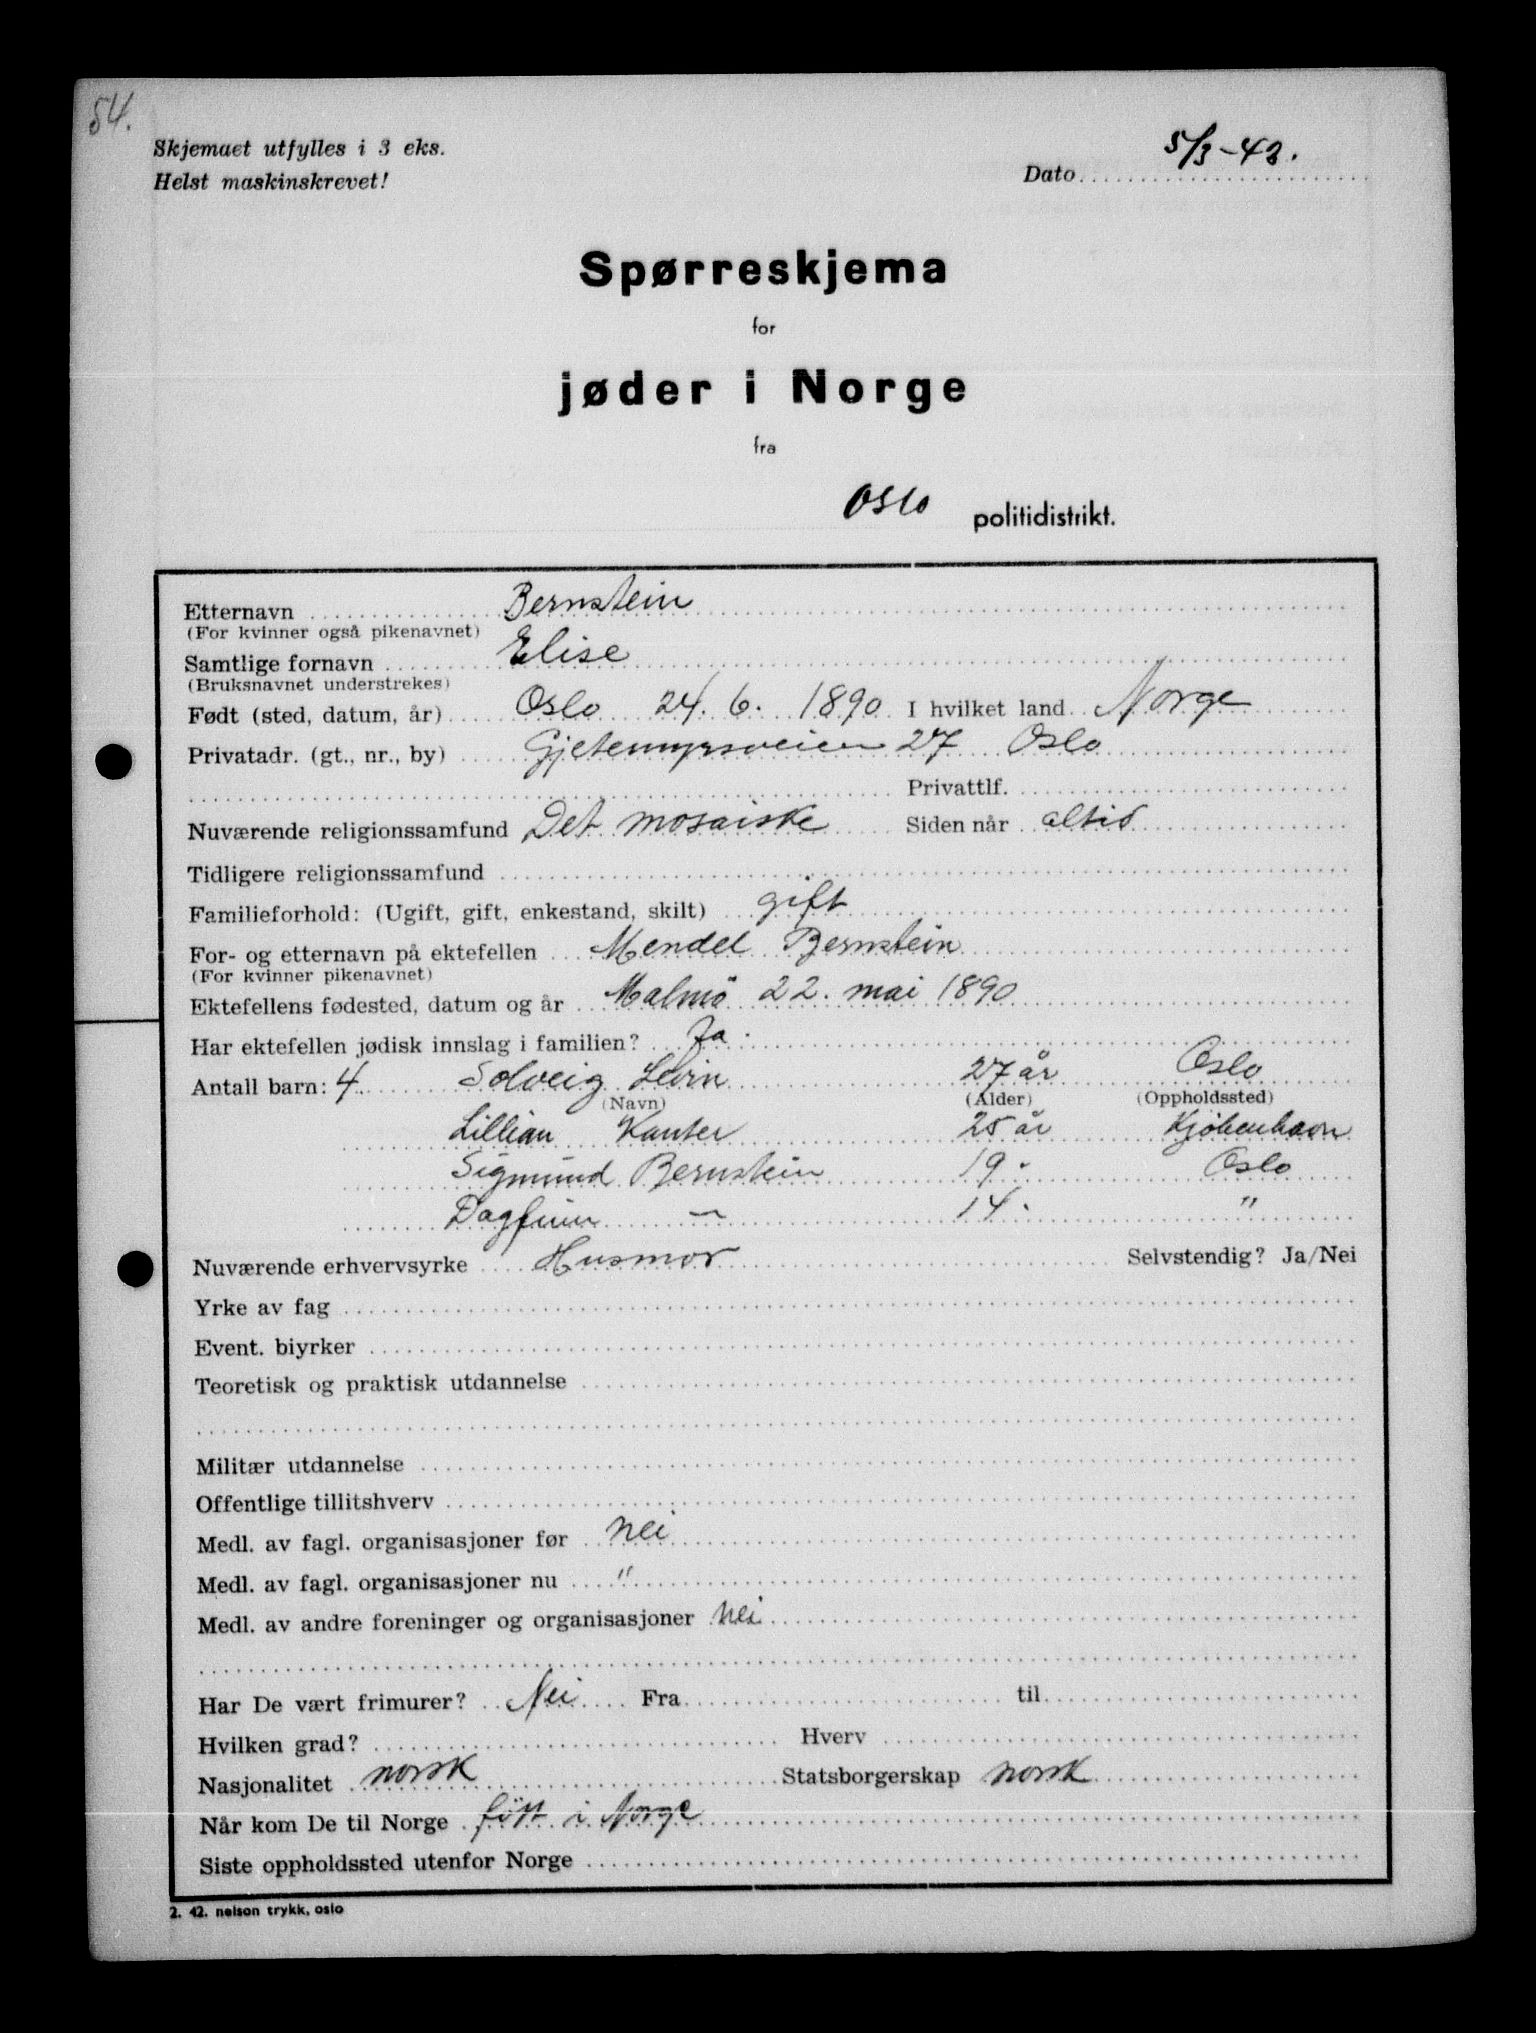 54.
Skjemaet utfylles i 3 eks.
Helst maskinskrevet!
Dato 5/3-42.
Spørreskjema
for
jøder i Norge
fra
Oslo politidistrikt.
Etternavn Bernstein
(For kvinner også pikenavnet)
Samtlige fornavn Elise
(Bruksnavnet understrekes)
Født (sted, datum, år) Oslo 24. 6. 1890 I hvilket land Norge
Privatadr. (gt., nr., by) Gjetemyrsveien 27 Oslo
Privattlf.
Nuværende religionssamfund Det mosaiske Siden når altid
Tidligere religionssamfund
Familieforhold: (Ugift, gift, enkestand, skilt) gift
For- og etternavn på ektefellen Mendel Bernstein
(For kvinner pikenavnet)
Ektefellens fødested, datum og år Malmö 22. mai 1890
Har ektefellen jødisk innslag i familien? Ja.
Antall barn: 4 Solveig Levin 27 år Oslo
(Navn) (Alder) (Oppholdssted)
Lillian Kanter 25 år Kjöbenhavn
Sigmund Bernstein 19 - Oslo
Dagfinn — 14 - "
Nuværende erhvervsyrke Husmor Selvstendig? Ja/Nei
Yrke av fag
Event. biyrker
Teoretisk og praktisk utdannelse
Militær utdannelse
Offentlige tillitshverv
Medl. av fagl. organisasjoner før Nei
Medl. av fagl. organisasjoner nu "
Medl. av andre foreninger og organisasjoner Nei
Har De vært frimurer? Nei Fra til
Hvilken grad? Hverv
Nasjonalitet norsk Statsborgerskap norsk
Når kom De til Norge fött i Norge
Siste oppholdssted utenfor Norge
2. 42. nelson trykk, oslo